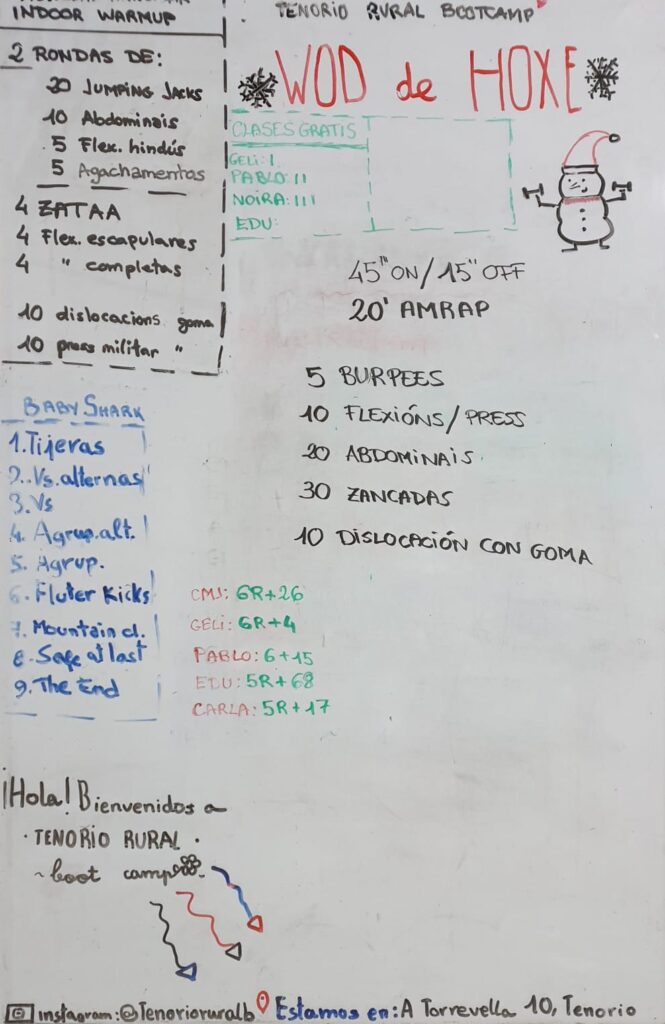 INDOOR WARMUP
2 RONDAS DE:
20 JUMPING JACKS
10 Abdominais
5 Flex. hindús
5 Agachamentos
4 ZATAA
4 Flex. escapulares
4 " completas
10 dislocacions goma
10 press militar "
TENORIO RURAL BOOTCAMP
WOD de HOXE
CLASES GRATIS
GELI: I
PABLO: II
NOIRA: III
EDU:
45" ON / 15" OFF
20' AMRAP
5 BURPEES
10 FLEXIÓNS / PRESS
20 ABDOMINAIS
30 ZANCADAS
10 DISLOCACIÓN CON GOMA
BABY SHARK
1. Tijeras
2. Vs. alternas
3. Vs
4. Agrup. alt.
5. Agrup.
6. Fluter Kicks
7. Mountain cl.
8. Safe at last
9. The End
CMJ: 6R+26
GELI: 6R+4
PABLO: 6+15
EDU: 5R+68
CARLA: 5R+17
¡Hola! Bienvenidos a
· TENORIO RURAL ·
~ boot camp
instagram: @Tenorioruralb Estamos en: A Torrevella 10, Tenorio